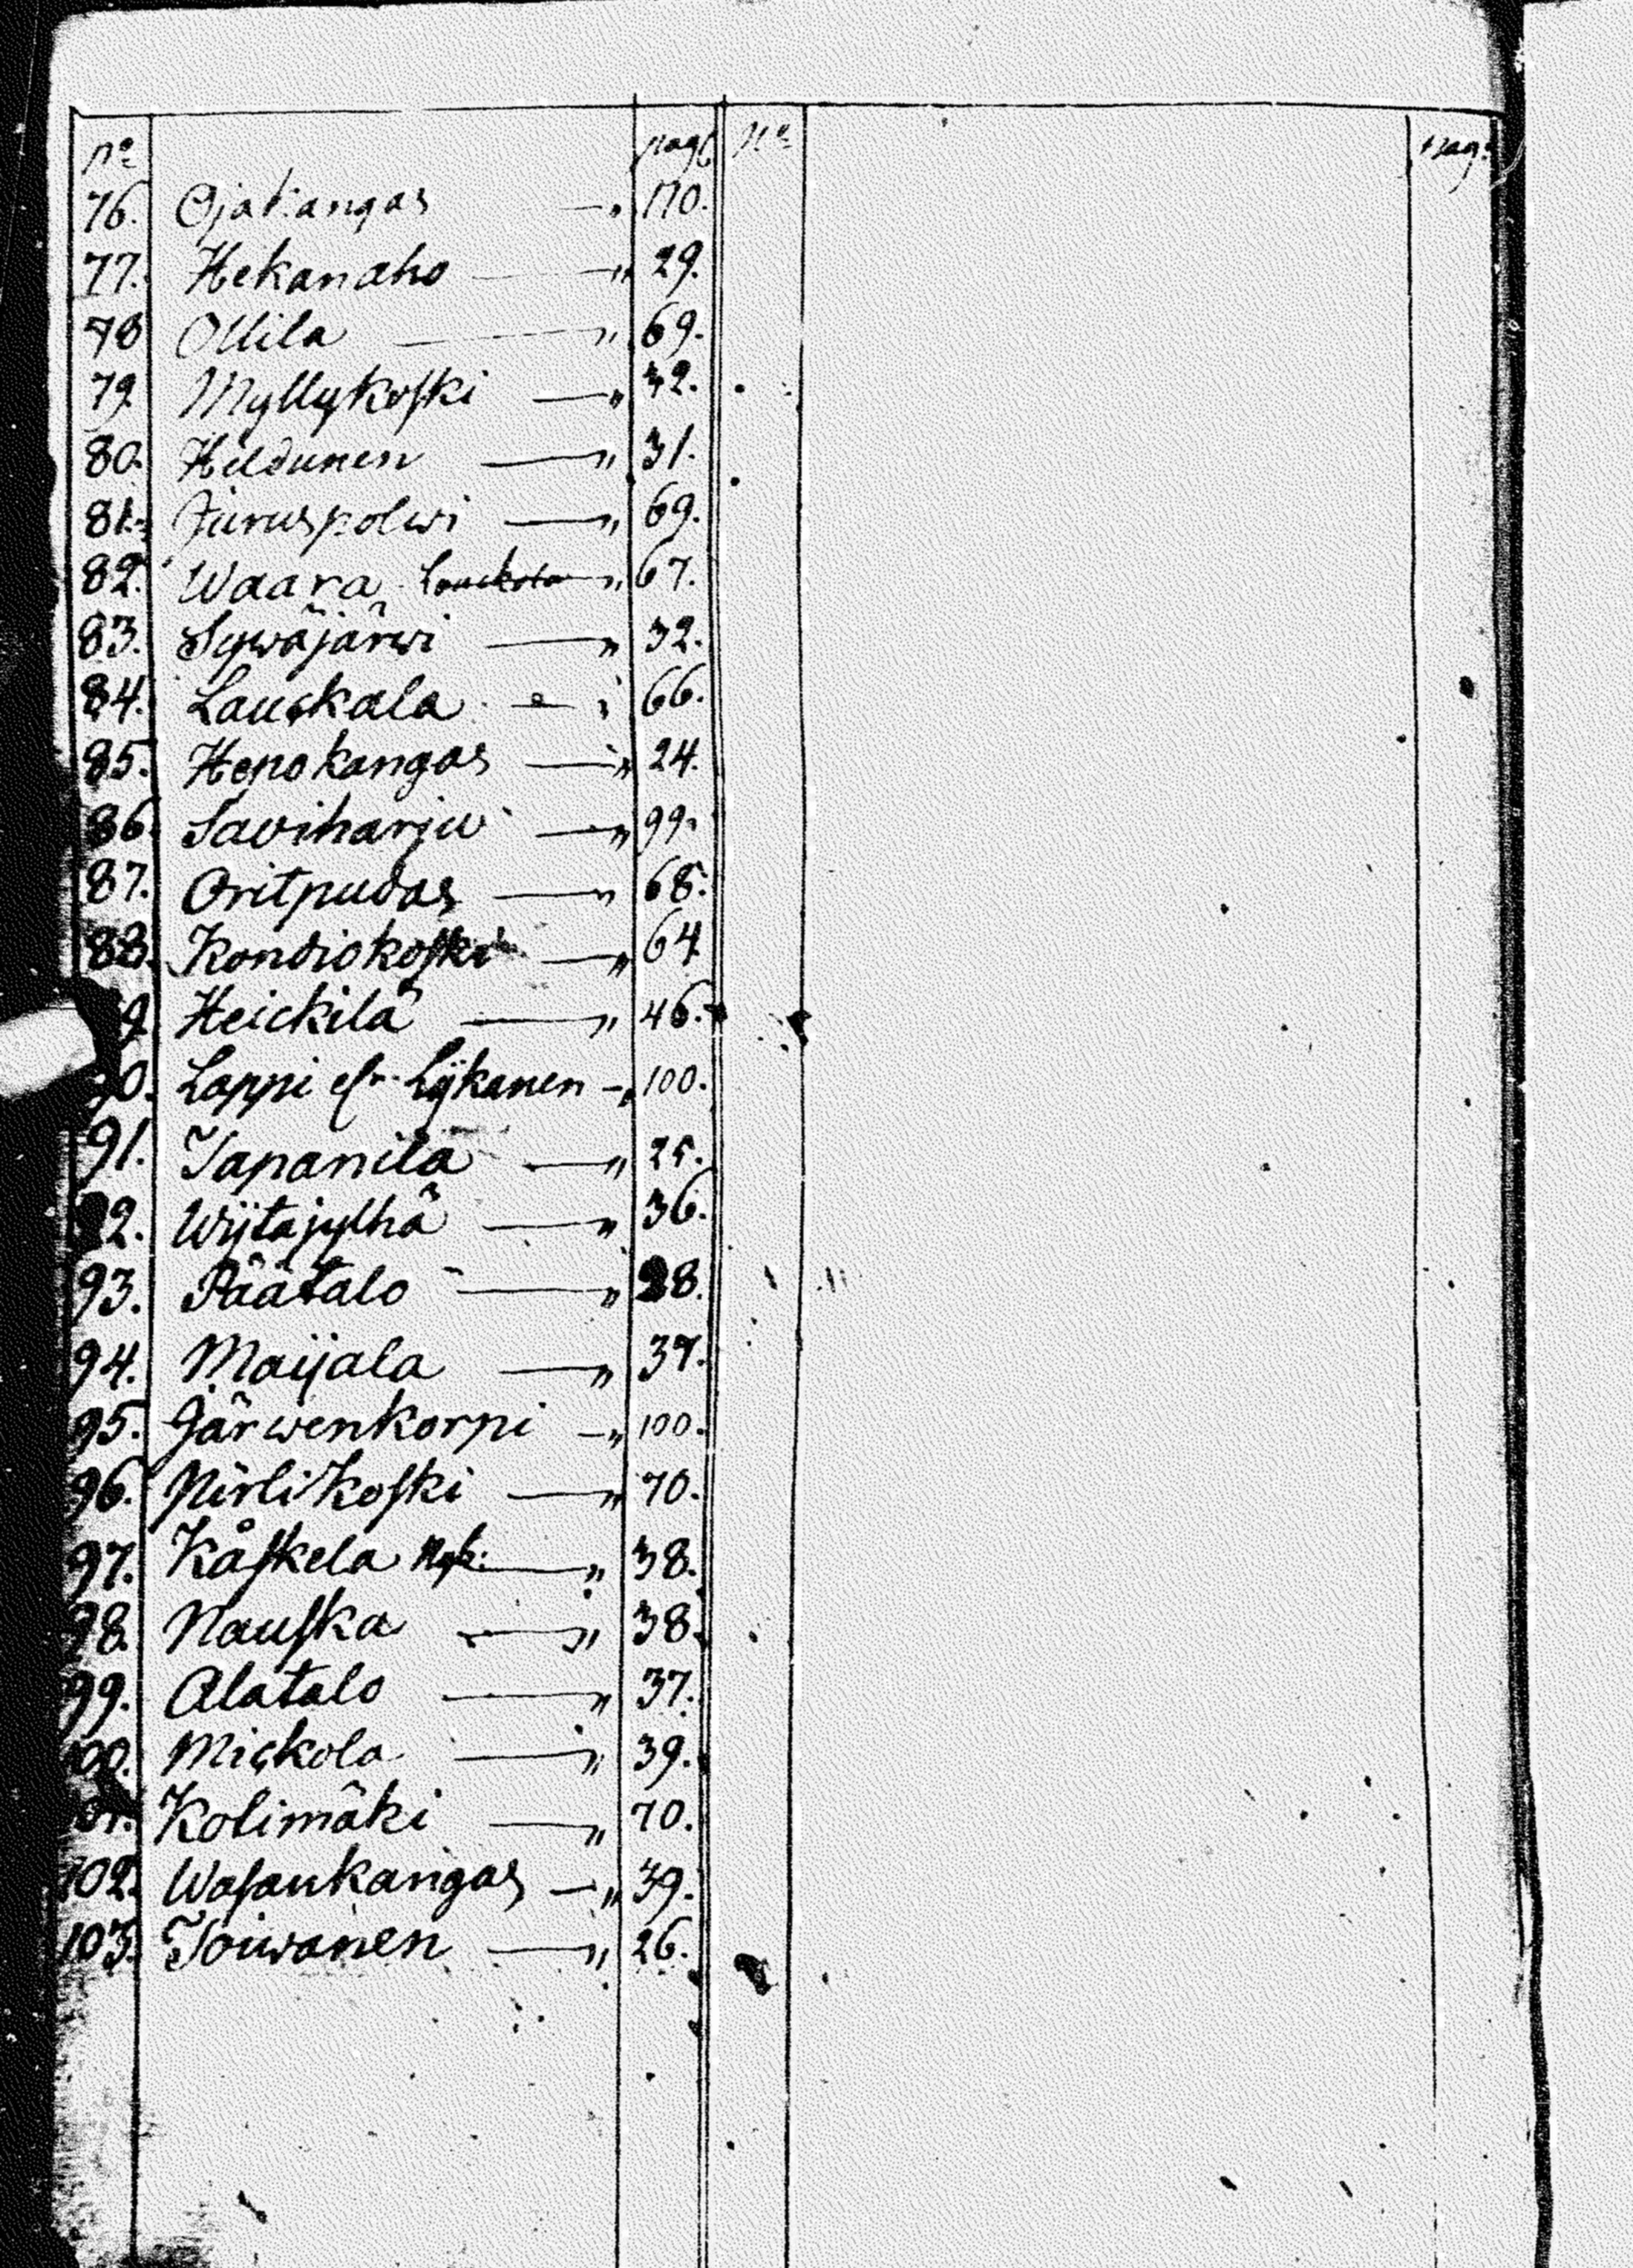 No pag: No pag:
76. Ojakangas — " 170.
77. Hekanaho — " 29.
78 Ollila — " 69.
79 Myllykoski — " 32.
80. Heldunen — " 31.
81. Juruspolwi — " 69.
82. Waara Lauckola " 67.
83. Sywäjärwi — " 32.
84. Lauckala — " 66.
85. Hepokangas — " 24.
86 Saviharju — " 99.
87. Oritpudas — " 68.
88. Kondiokoski — " 64
89 Heickilä — " 46.
90. Lappi el:r Lijkanen — " 100.
91. Tapanila — " 25.
92. Wijtajylhä — " 36.
93. Päätalo — " 28.
94. Maijala — " 37.
95. Järwenkorpi — " 100.
96. Nirlikoski — " 70.
97. Kåskela Nyb: — " 38.
98. Nauska — " 38.
99. Alatalo — " 37.
100. Mickola — " 39.
101. Kolimäki — " 70.
102. Wasankangas — " 39.
103. Toiwanen — " 26.